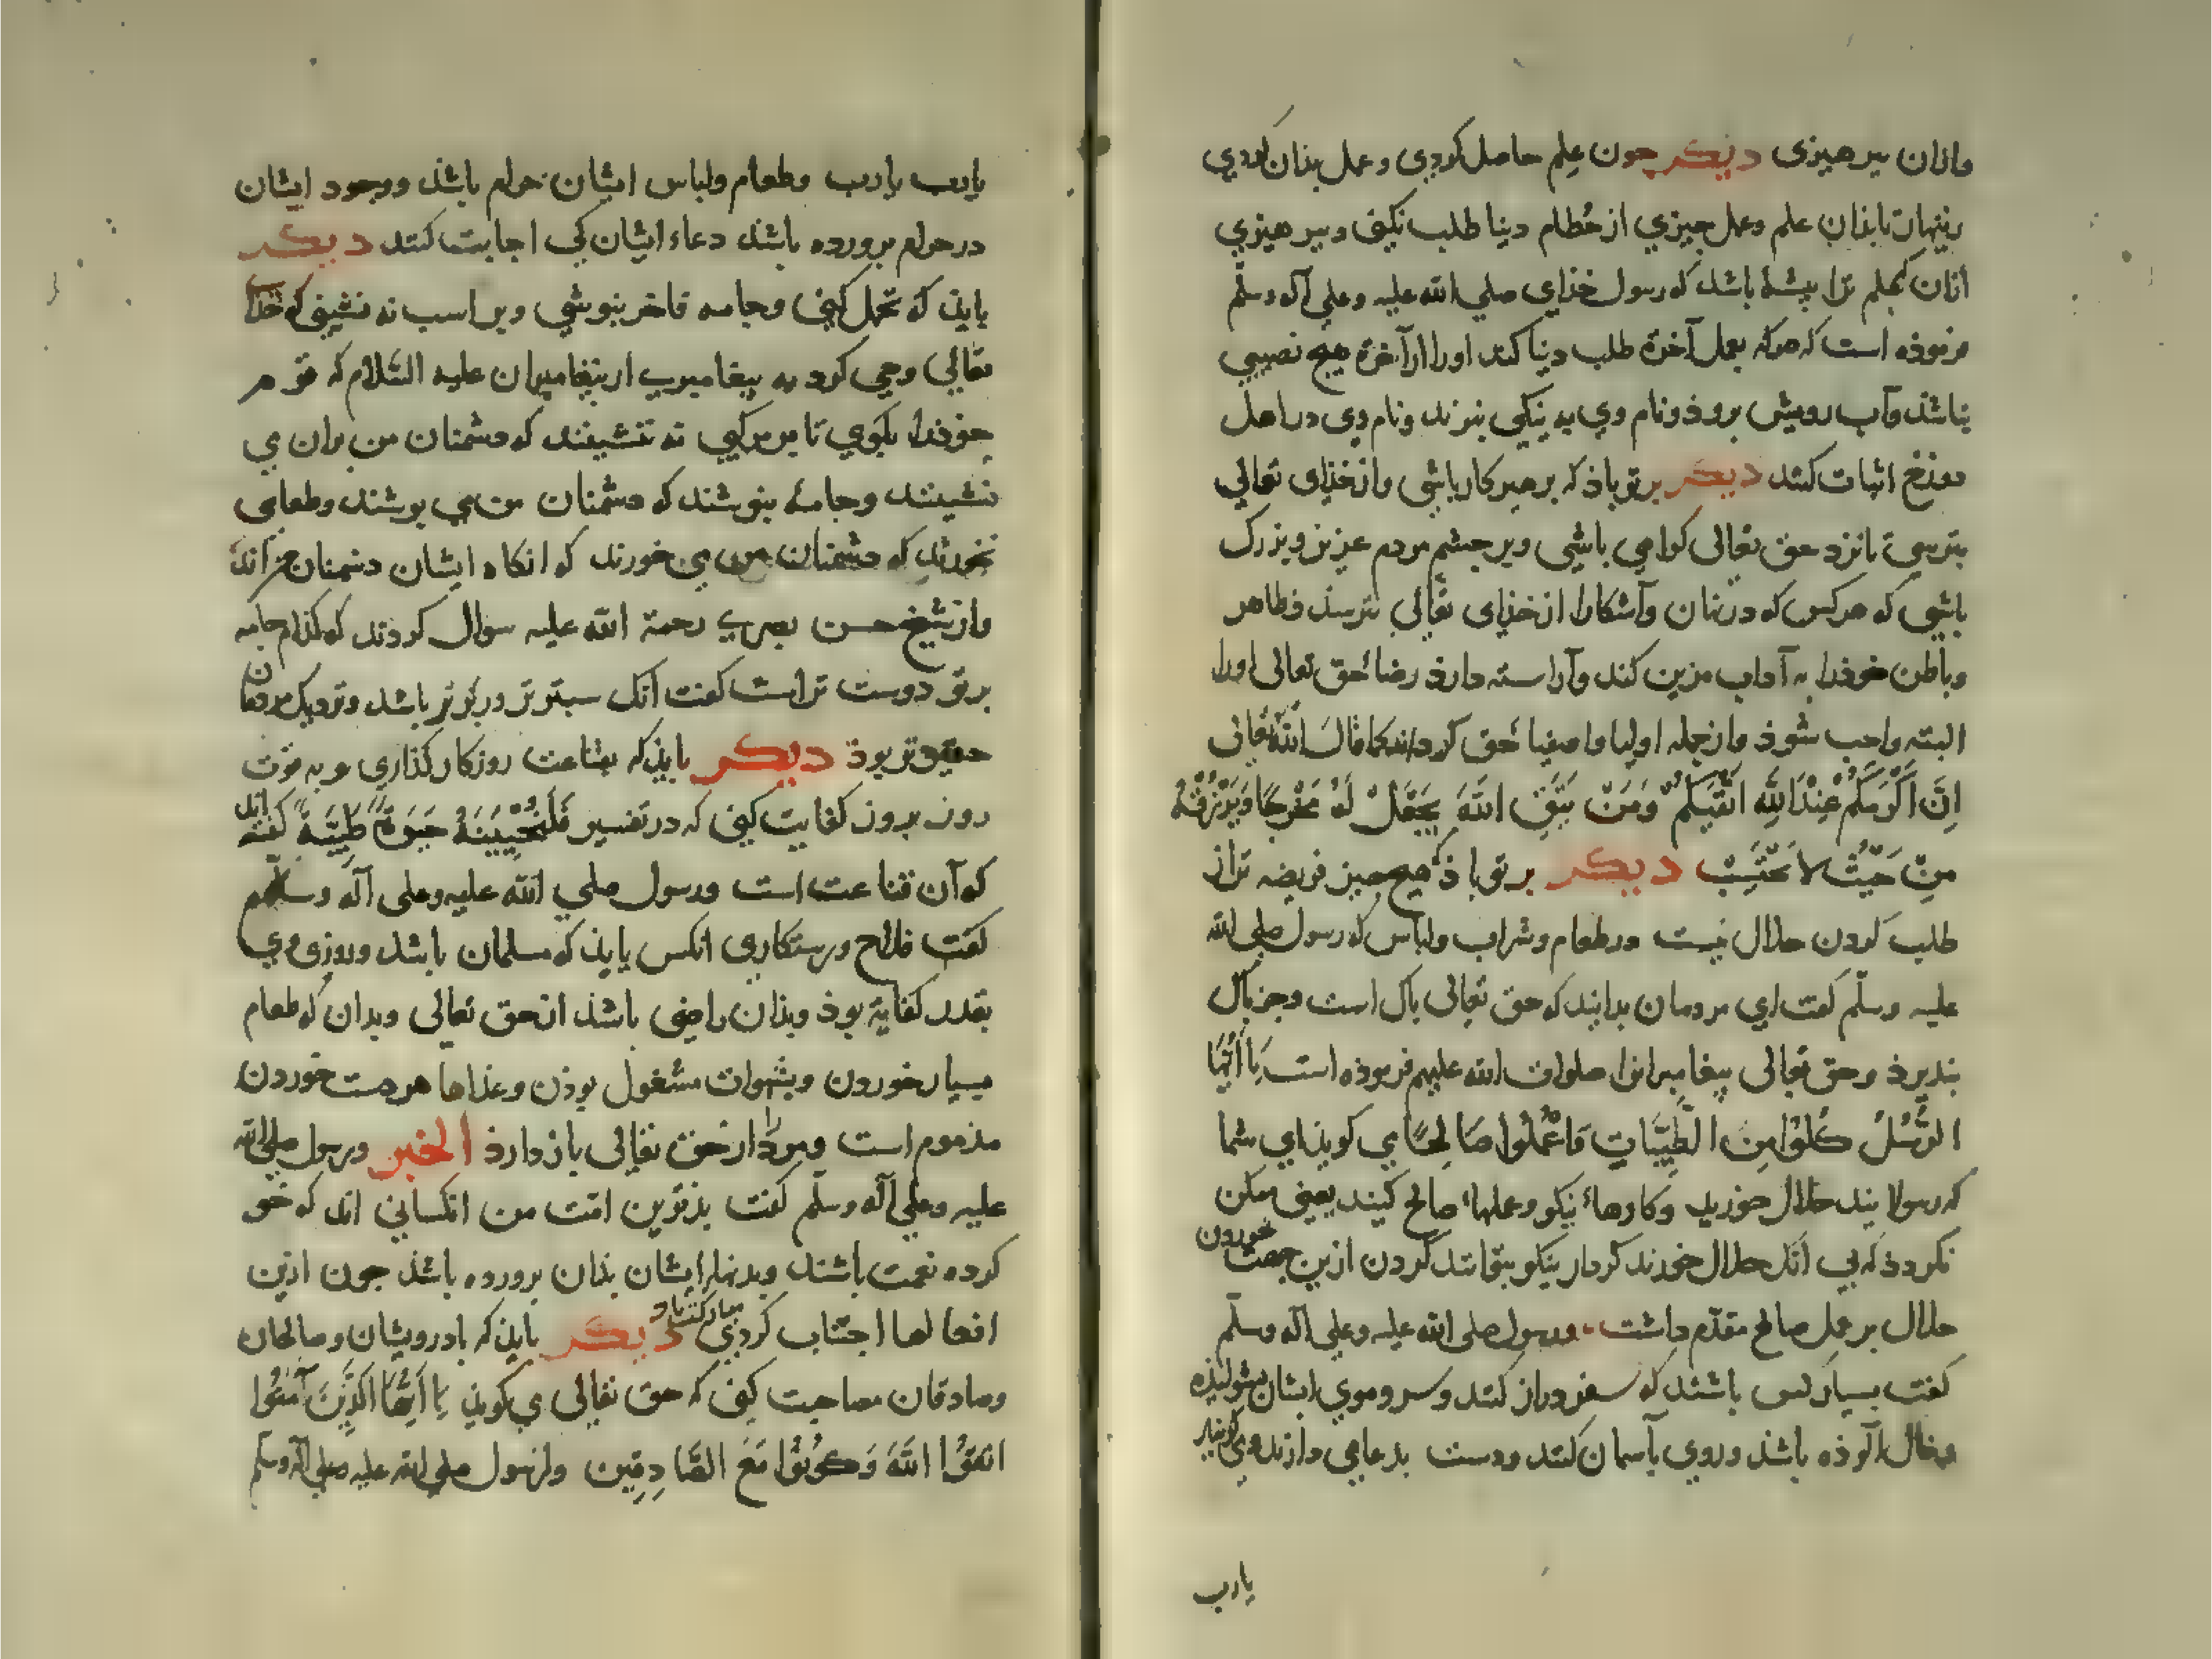 وازان بپرهیزی دیکر جون علم حاصل کردی وعمل بذان کردی
زینهار تا بذان علم وعمل جیزی از حُطام دنیا طلب نکنی وبپرهیزی
ازان که علم ترا بیشهٔ باشد که رسول خذای صلی الله علیه وعلی آله وسلّم
فرموذه است که هرکه بعمل آخرة طلب دنیا کند اورا ازآخرة هیج نصیبی
نباشذ وآب رویش بروذ ونام وی به نیکی نبرند ونام وی در اهل
دوزخ اثبات کنند دیکر بر تو باذ که برهیزکار باشی واز خذای تعالی
بترسی تا نزد حق تعالی کرامی باشی وبر جشم مردم عزیز وبزرک
باشی که هرکس که در نهان وآشکارا از خذای تعالی بترسذ وظاهر
وباطن خوذرا به آداب مزین کند وآراسته دارذ رضاء حق تعالی اورا
البته واجب شوذ وازجمله اولیا واصفیا حق کردانذ کما قال الله تعالی
اِنَّ اَکْرَمَکُمْ عِنْدَ اللهِ اَتْقیکُمْ وَمَنْ یَتَّقِ اللهَ یَجْعَلْ لَهُ مَخْرَجًا وَیَرْزُقْهُ
مِنْ حَیْثُ لا یَحْتَسِبْ دیکر بر تو باذ که هیج جیز فریضه تر از
طلب کردن حلال نیست در طعام وشراب ولباس که رسول صلی الله
علیه وسلّم کفت ای مردمان بدانید که حق تعالی باک است وجز باک
نبذیرذ وحق تعالی بیغامبرانرا صلوات الله علیهم فرموذه است یَا اَیُّهَا
الرُّسُلُ کُلُوْا مِنَ الطَّیِّبَاتِ وَاعْمَلُوا صَالِحًا می کویذ ای شما
که رسولانید حلال خورید وکارهاء نیکو وعملهاء صالح کنید یعنی ممکن
نکردذ که بی انک حلال خورند کردار نیکو بتوانند کردن ازین جهت خوردن
حلال بر عمل صالح مقدّم داشت ورسول صلی الله علیه وعلی اله وسلّم
کفت بسیار کس باشند که سفر دراز کنند وسر وموی ایشان بشولیذه
وخاک الوذه باشذ وروی بآسمان کنند ودست بدعا می دارند ومی کویند
یارب
یارب یارب وطعام ولباس ایشان حرام باشذ ووجود ایشان
در حرام برورده باشذ دعاء ایشان کی اجابت کنند دیکر
بایذ که تجمل کنی وجامه فاخر نبوشی وبر اسب نه نشینی که خذای
تعالی وحی کرد به بیغامبری از بیغامبران علیه السّلام که قوم
خوذرا بکوی تا بر مرکبی نه نشینند که دشمنان من بران می
نشینند وجامهٔ نبوشند که دشمنان من می بوشند وطعامی
نخورند که دشمنان من می خورند که انکاه ایشان دشمنان من اند
واز شیخ حسن بصری رحمة الله علیه سوال کردند که کذام جامه
بر تو دوست تراست کفت انک سبتر تر ودرشتر باشد ونزدیک مردمان
حقیرتر بوذ دیکر بایذ که بقناعت روزکار کذاری وبه قوت
روز بروز کفایت کنی که در تفسیر فَلَنُحْیِیَنَّهُ حَیَوةً طَیِّبَةً کفته اند
که آن قناعت است ورسول صلی الله علیه وعلی آله وسلّم
کفت فلاح ورستکاری انکس یابذ که مسلمان باشد وروزی وی
بقدر کفایة بوذ وبذان راضی باشذ از حق تعالی وبدان که طعام
بسیار خوردن وبشهوات مشغول بوذن وغذاها هر دست خوردن
مذموم است ومردرا از حق تعالی باز دارذ الخبر ورسول صلی الله
علیه وعلی آله وسلّم کفت بذترین امّت من انکسانی اند که خو
کرده نعمت باشند وبدنهاء ایشان بذان برورده باشذ جون ازین
افعالها اجتناب کردی مبارکت باد دیکر بایذ که با درویشان وصالحان
وصادقان مصاحبت کنی که حق تعالی می کویذ یَا اَیُّهَا الَّذِیْنَ آمَنُوا
اتَّقُوا اللهَ وَکُوْنُوْا مَعَ الصَّادِقِین واز رسول صلی الله علیه وعلی آله وسلّم